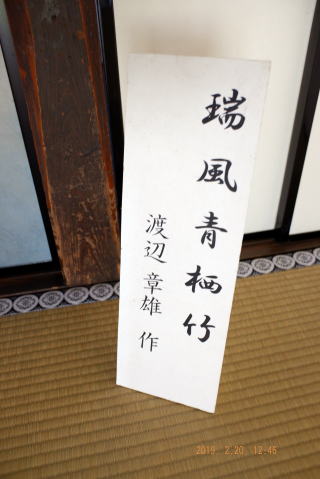 瑞風青栖竹
渡辺章雄 作
2019 2.20 12:46